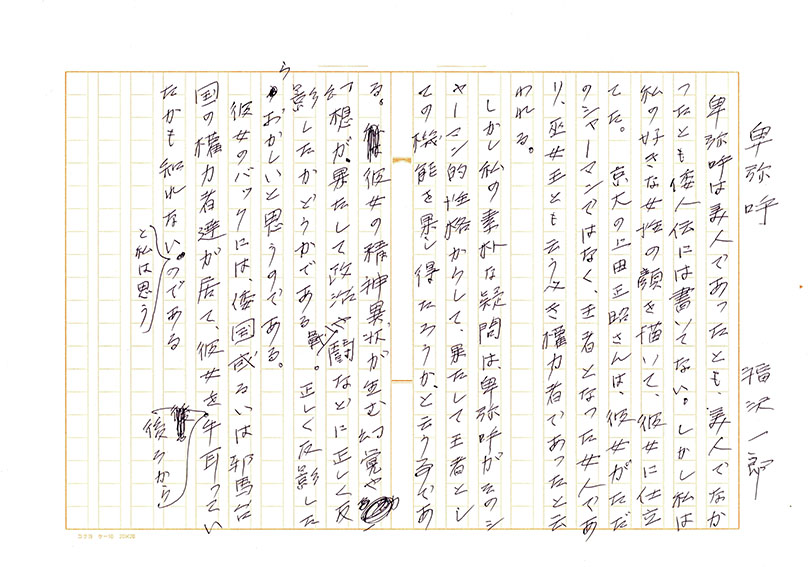 卑弥呼
福沢一郎
卑弥呼は美人であったとも、美人でなか
ったとも倭人伝には書いてない。しかし私は
私の好きな女性の顔を描いて、彼女に仕立
てた。京大の上田正昭さんは、彼女がただ
のシャーマンではなく、王者となった女人であ
り、巫女王とも云うべき権力者であったと云
われる。
しかし私の素朴な疑問は、卑弥呼がそのシ
ャーマン的性格からして、果たして王者とし
ての機能を果し得たろうか、と云う事であ
る。彼女の精神異状が生む幻覚や
幻想が、果たして政治や戦闘などに正しく反
影したかどうかである。正しく反影した
らおかしいと思うのである。
彼女のバックには、倭国或るいは邪馬台
国の権力者達が居て、彼女を後ろから牛耳ってい
たかも知れない。と私は思うのである